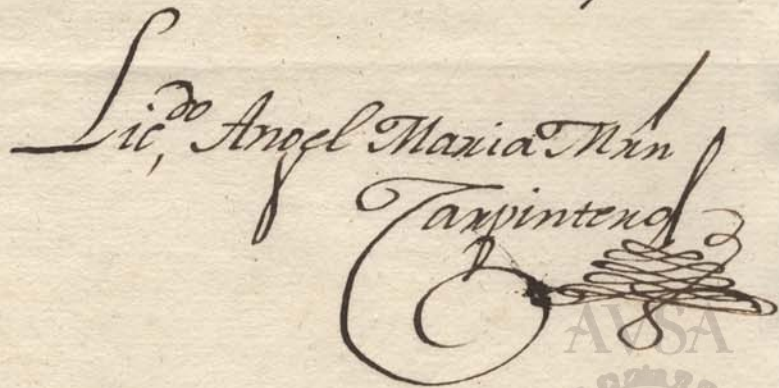 Lic.do Angel Maria Mrn
Carpintero
AVSA